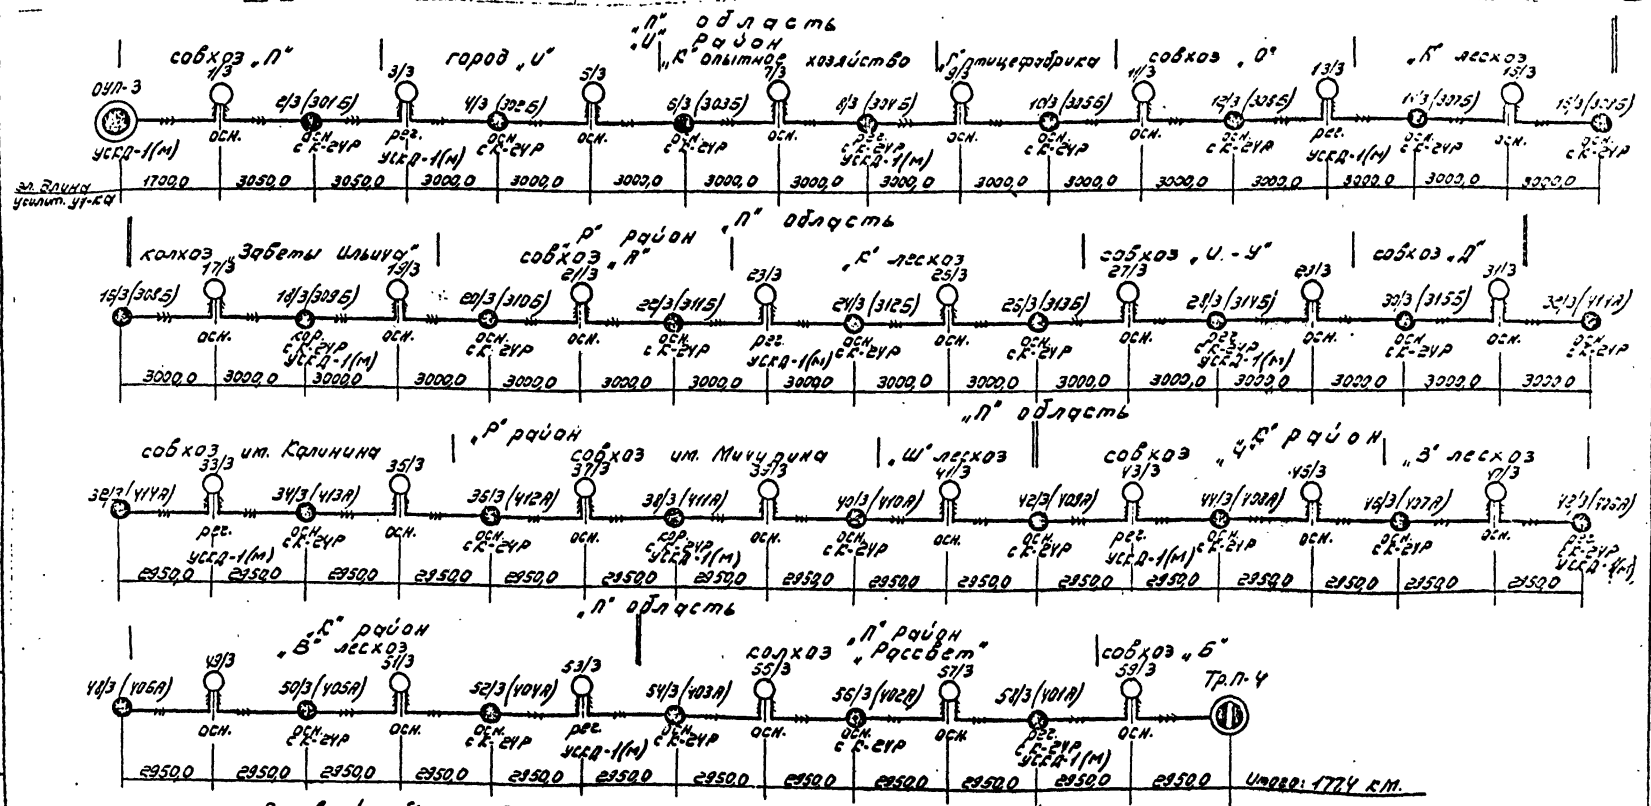 „П" область
„И" район
совхоз „П" город „И" „К" опытное хозяйство „Г" птицефабрика совхоз „О" „К" лесхоз
1/3 3/3 5/3 7/3 9/3 11/3 13/3 15/3
ОУП-3 2/3 (301Б) 4/3 (302Б) 6/3 (303Б) 8/3 (304Б) 10/3 (305Б) 12/3 (306Б) 14/3 (307Б) 16/3 (308Б)
УСКД-1(м) осн. осн. с К-24Р рег. УСКД-1(м) осн. с К-24Р осн. осн. с К-24Р осн. рег. с К-24Р УСКД-1(м) осн. осн. с К-24Р осн. осн. с К-24Р рег. УСКД-1(м) осн. с К-24Р осн. осн. с К-24Р
эл. длина усилит. уч-ка 1700,0 3050,0 3050,0 3000,0 3000,0 3000,0 3000,0 3000,0 3000,0 3000,0 3000,0 3000,0 3000,0 3000,0 3000,0 3000,0
„П" область
„Р" район
колхоз „Заветы Ильича" совхоз „Я" „К" лесхоз совхоз „И.-У" совхоз „Д"
17/3 19/3 21/3 23/3 25/3 27/3 29/3 31/3
16/3 (308Б) 18/3 (309Б) 20/3 (310Б) 22/3 (311Б) 24/3 (312Б) 26/3 (313Б) 28/3 (314Б) 30/3 (315Б) 32/3 (414А)
осн. кор. с К-24Р УСКД-1(м) осн. осн. с К-24Р осн. осн. с К-24Р рег. УСКД-1(м) осн. с К-24Р осн. осн. с К-24Р осн. рег. с К-24Р УСКД-1(м) осн. осн. с К-24Р осн. осн. с К-24Р
3000,0 3000,0 3000,0 3000,0 3000,0 3000,0 3000,0 3000,0 3000,0 3000,0 3000,0 3000,0 3000,0 3000,0 3000,0 3000,0
„П" область
„Р" район „К" район
совхоз им. Калинина совхоз им. Мичурина „Ш" лесхоз совхоз „Ч" „В" лесхоз
33/3 35/3 37/3 39/3 41/3 43/3 45/3 47/3
32/3 (414А) 34/3 (413А) 36/3 (412А) 38/3 (411А) 40/3 (410А) 42/3 (409А) 44/3 (408А) 46/3 (407А) 48/3 (406А)
рег. УСКД-1(м) осн. с К-24Р осн. осн. с К-24Р осн. кор. с К-24Р УСКД-1(м) осн. осн. с К-24Р осн. осн. с К-24Р рег. УСКД-1(м) осн. с К-24Р осн. осн. с К-24Р осн. рег. с К-24Р УСКД-1(м)
2950,0 2950,0 2950,0 2950,0 2950,0 2950,0 2950,0 2950,0 2950,0 2950,0 2950,0 2950,0 2950,0 2950,0 2950,0 2950,0
„П" область
„К" район „П" район
„В" лесхоз колхоз „Рассвет" совхоз „Б"
49/3 51/3 53/3 55/3 57/3 59/3 Тр.П-4
48/3 (406А) 50/3 (405А) 52/3 (404А) 54/3 (403А) 56/3 (402А) 58/3 (401А)
осн. осн. с К-24Р осн. осн. с К-24Р рег. УСКД-1(м) осн. с К-24Р осн. осн. с К-24Р осн. рег. с К-24Р УСКД-1(м) осн.
2950,0 2950,0 2950,0 2950,0 2950,0 2950,0 2950,0 2950,0 2950,0 2950,0 2950,0 2950,0 Итого: 177,4 км.